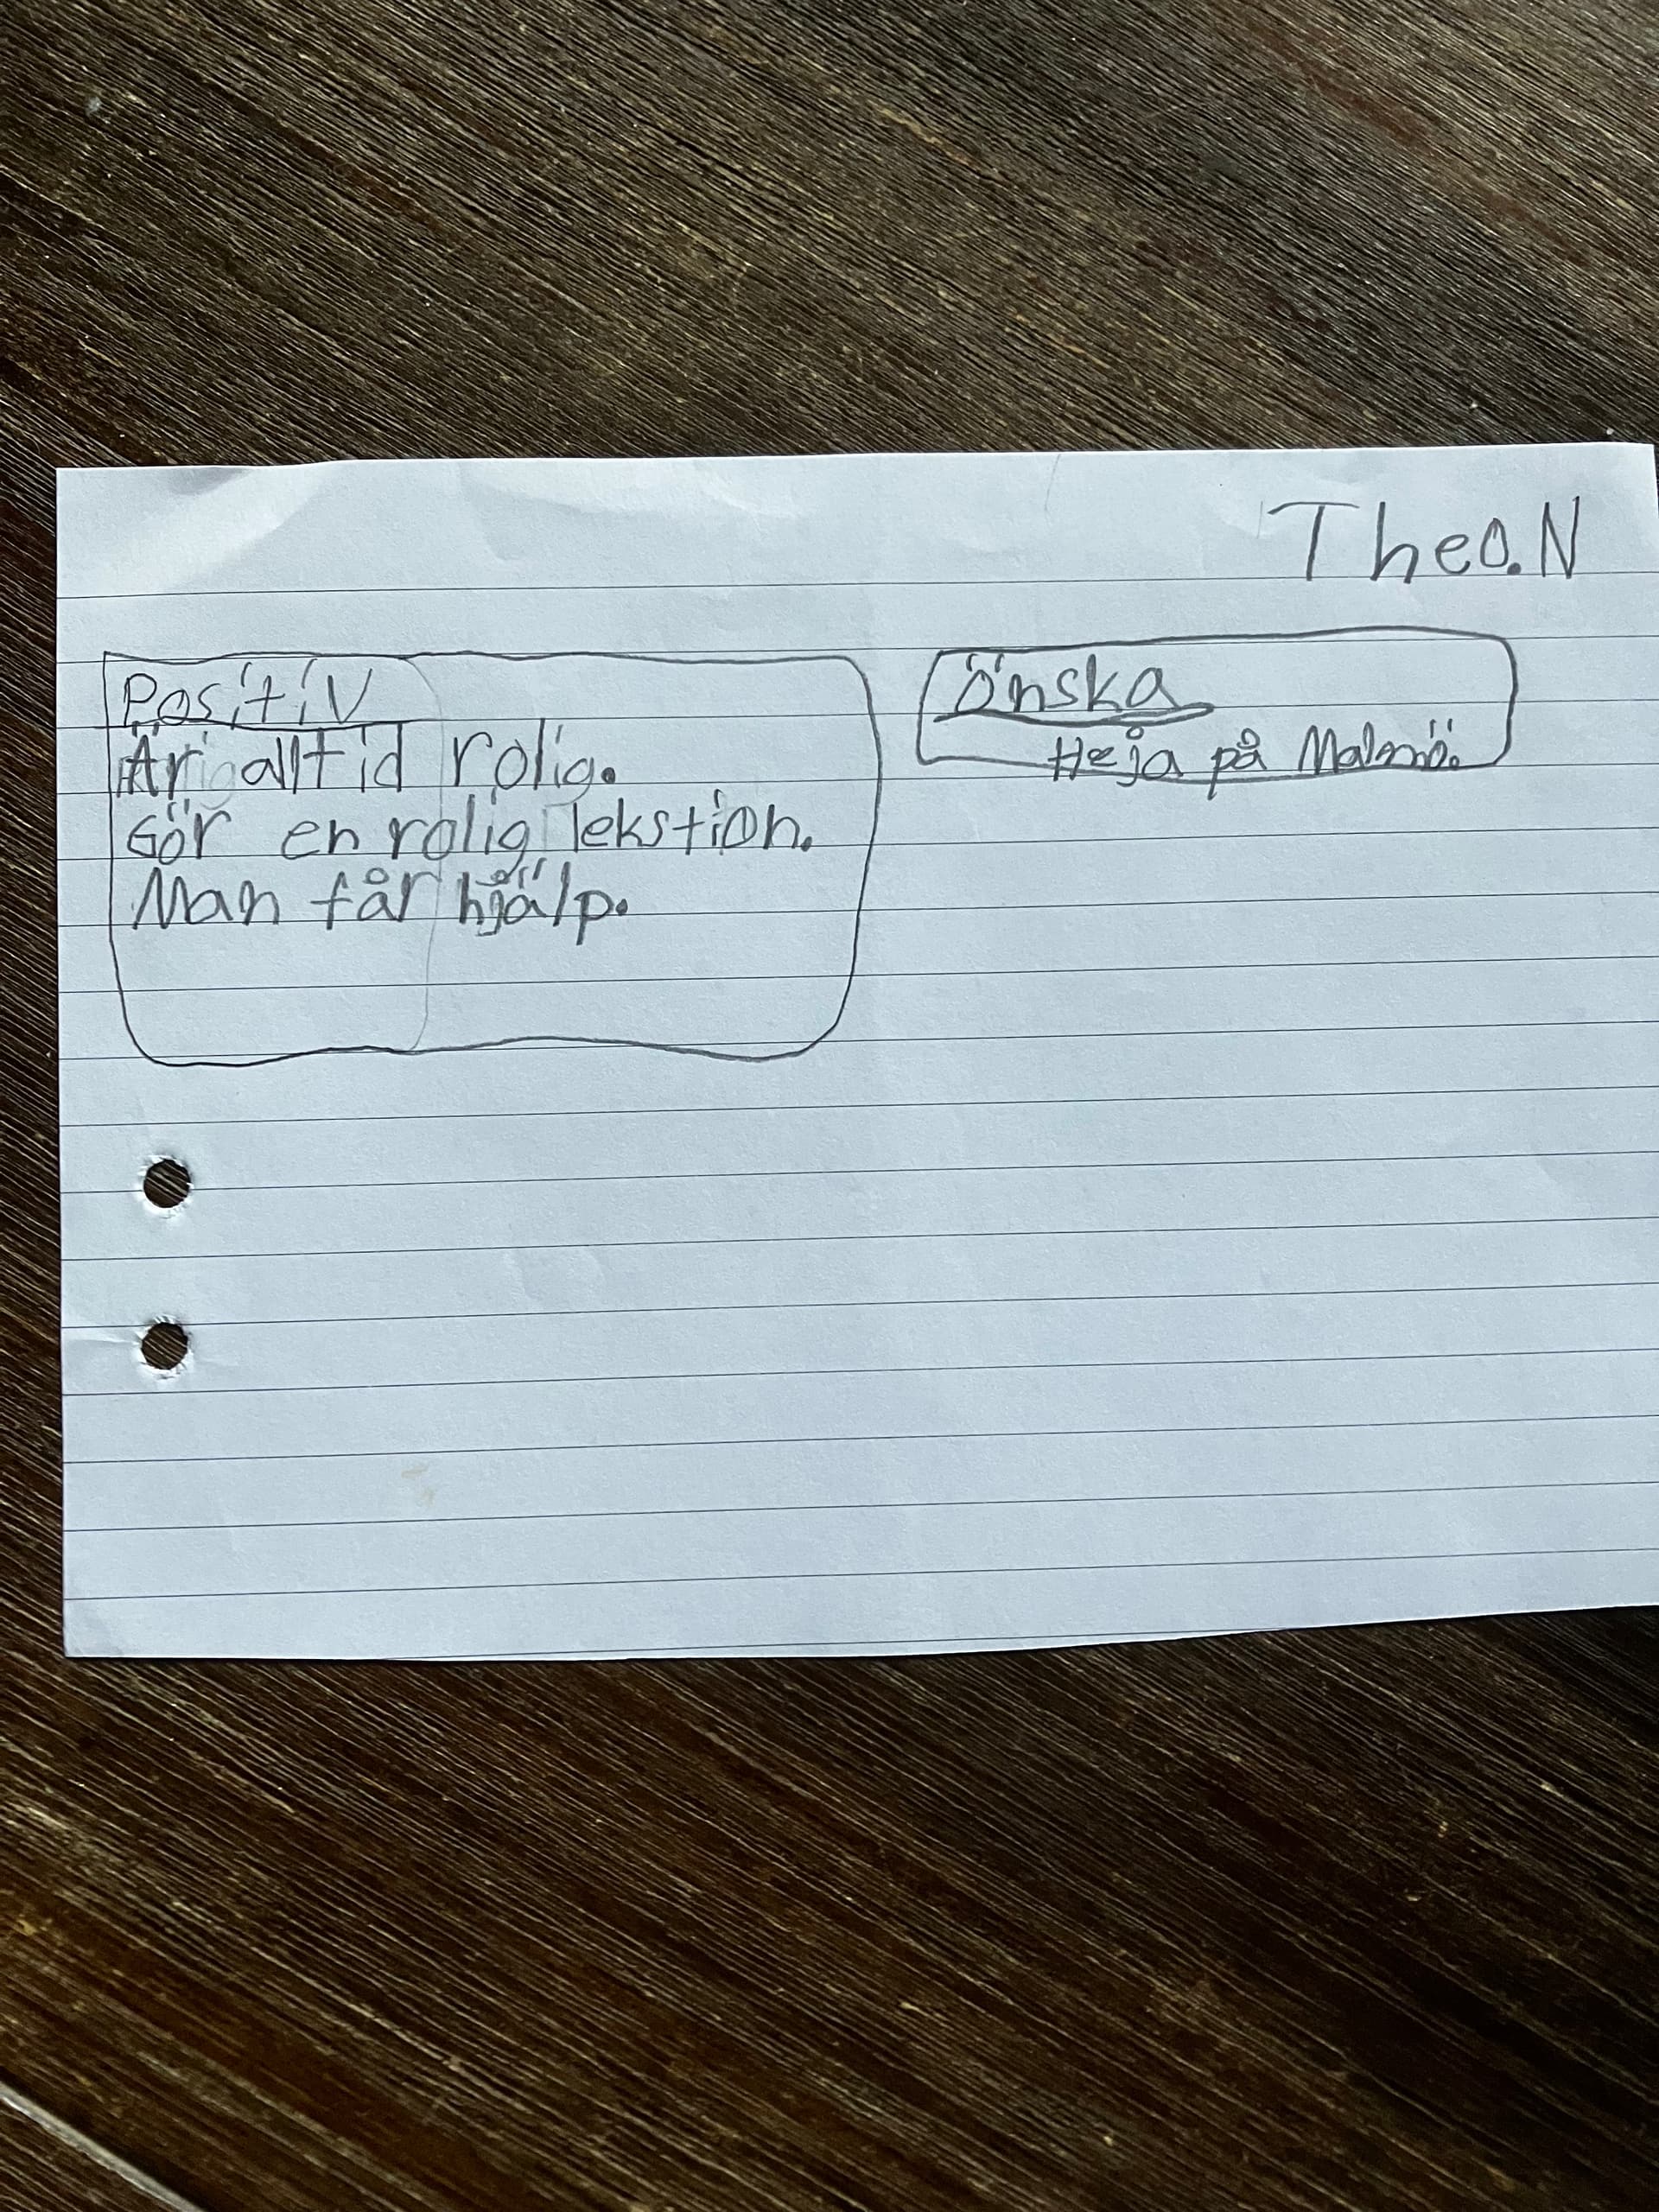 Theo.N
Positiv
Är alltid rolig.
Gör en rolig lekstion.
Man får hjälp.
Önska
Heja på Malmö.